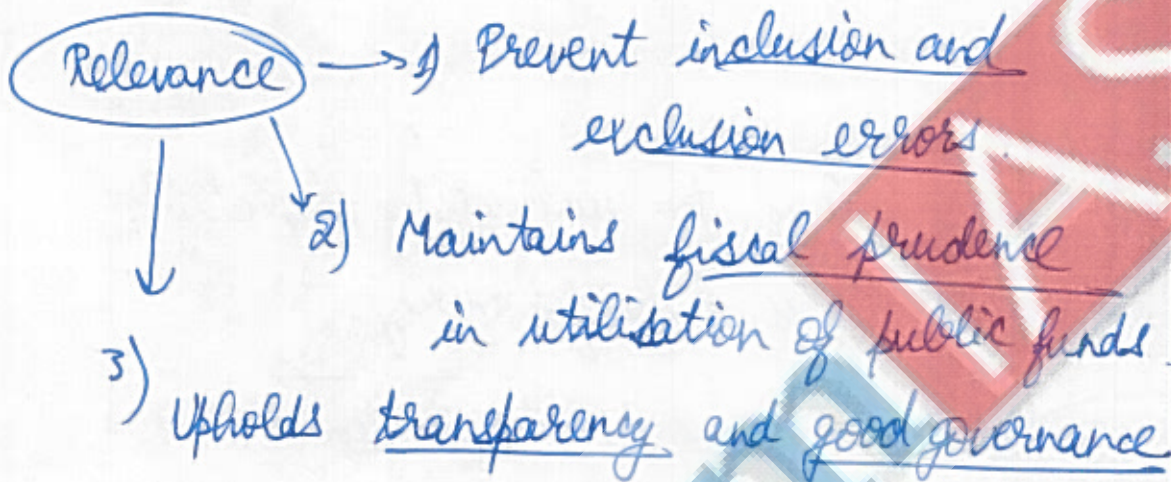 Relevance → 1) Prevent inclusion and
exclusion errors.
2) Maintains fiscal prudence
in utilisation of public funds.
3)
Upholds transparency and good governance
IAS